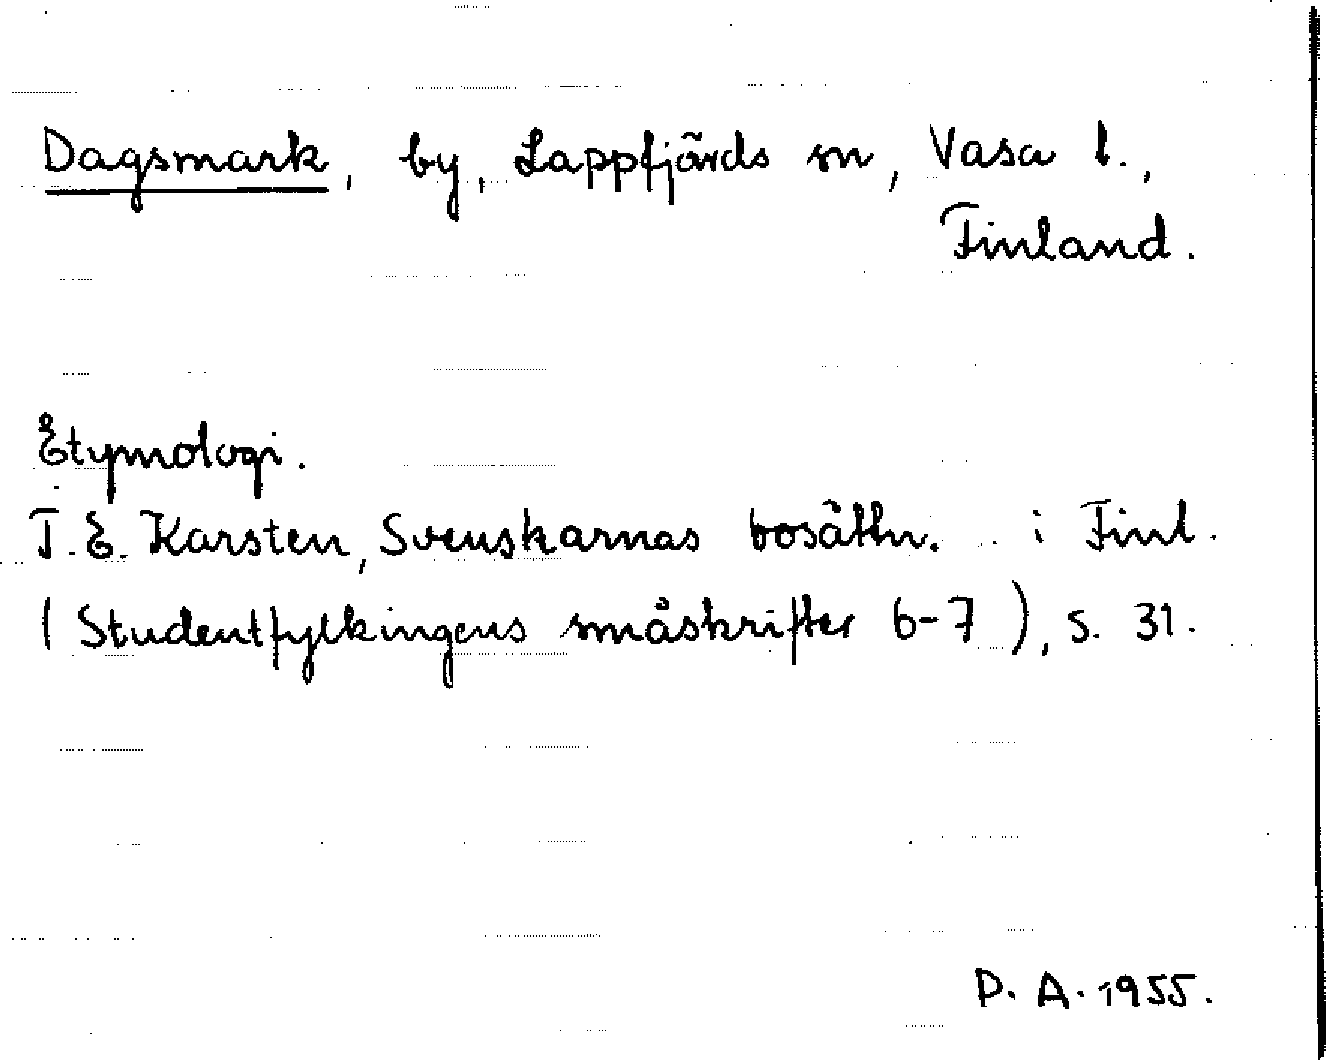 Dagsmark, by, Lappfjärds sn, Vasa l.,
Finland.
Etymologi.
T. E. Karsten, Svenskarnas bosättn. i Finl.
(Studentfylkingens småskrifter 6-7), s. 31.
D. A. 1955.